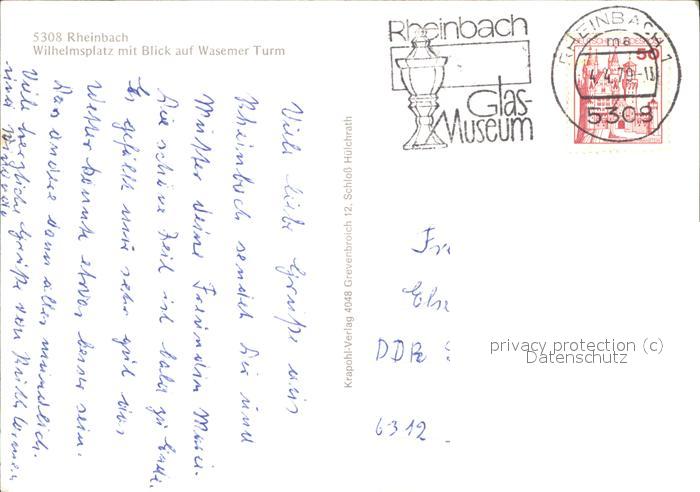 5308 Rheinbach
Wilhelmsplatz mit Blick auf Wasemer Turm
Rheinbach
Glas-
Museum
RHEINBACH 1
ma
4.4.79-11
5308
50
Viele liebe Grüße aus
Rheinbach sendet Dir und
Mutter Deine Freundin
Die schöne Zeit ist bald zu Ende.
Es gefällt mir sehr gut hier,
Wetter könnte etwas besser sein.
Das andere dann alles mündlich.
Viele herzliche Grüße von
und
Krapohl-Verlag 4048 Grevenbroich 12, Schloß Hülchrath
DDR
6312
privacy protection (c)
Datenschutz